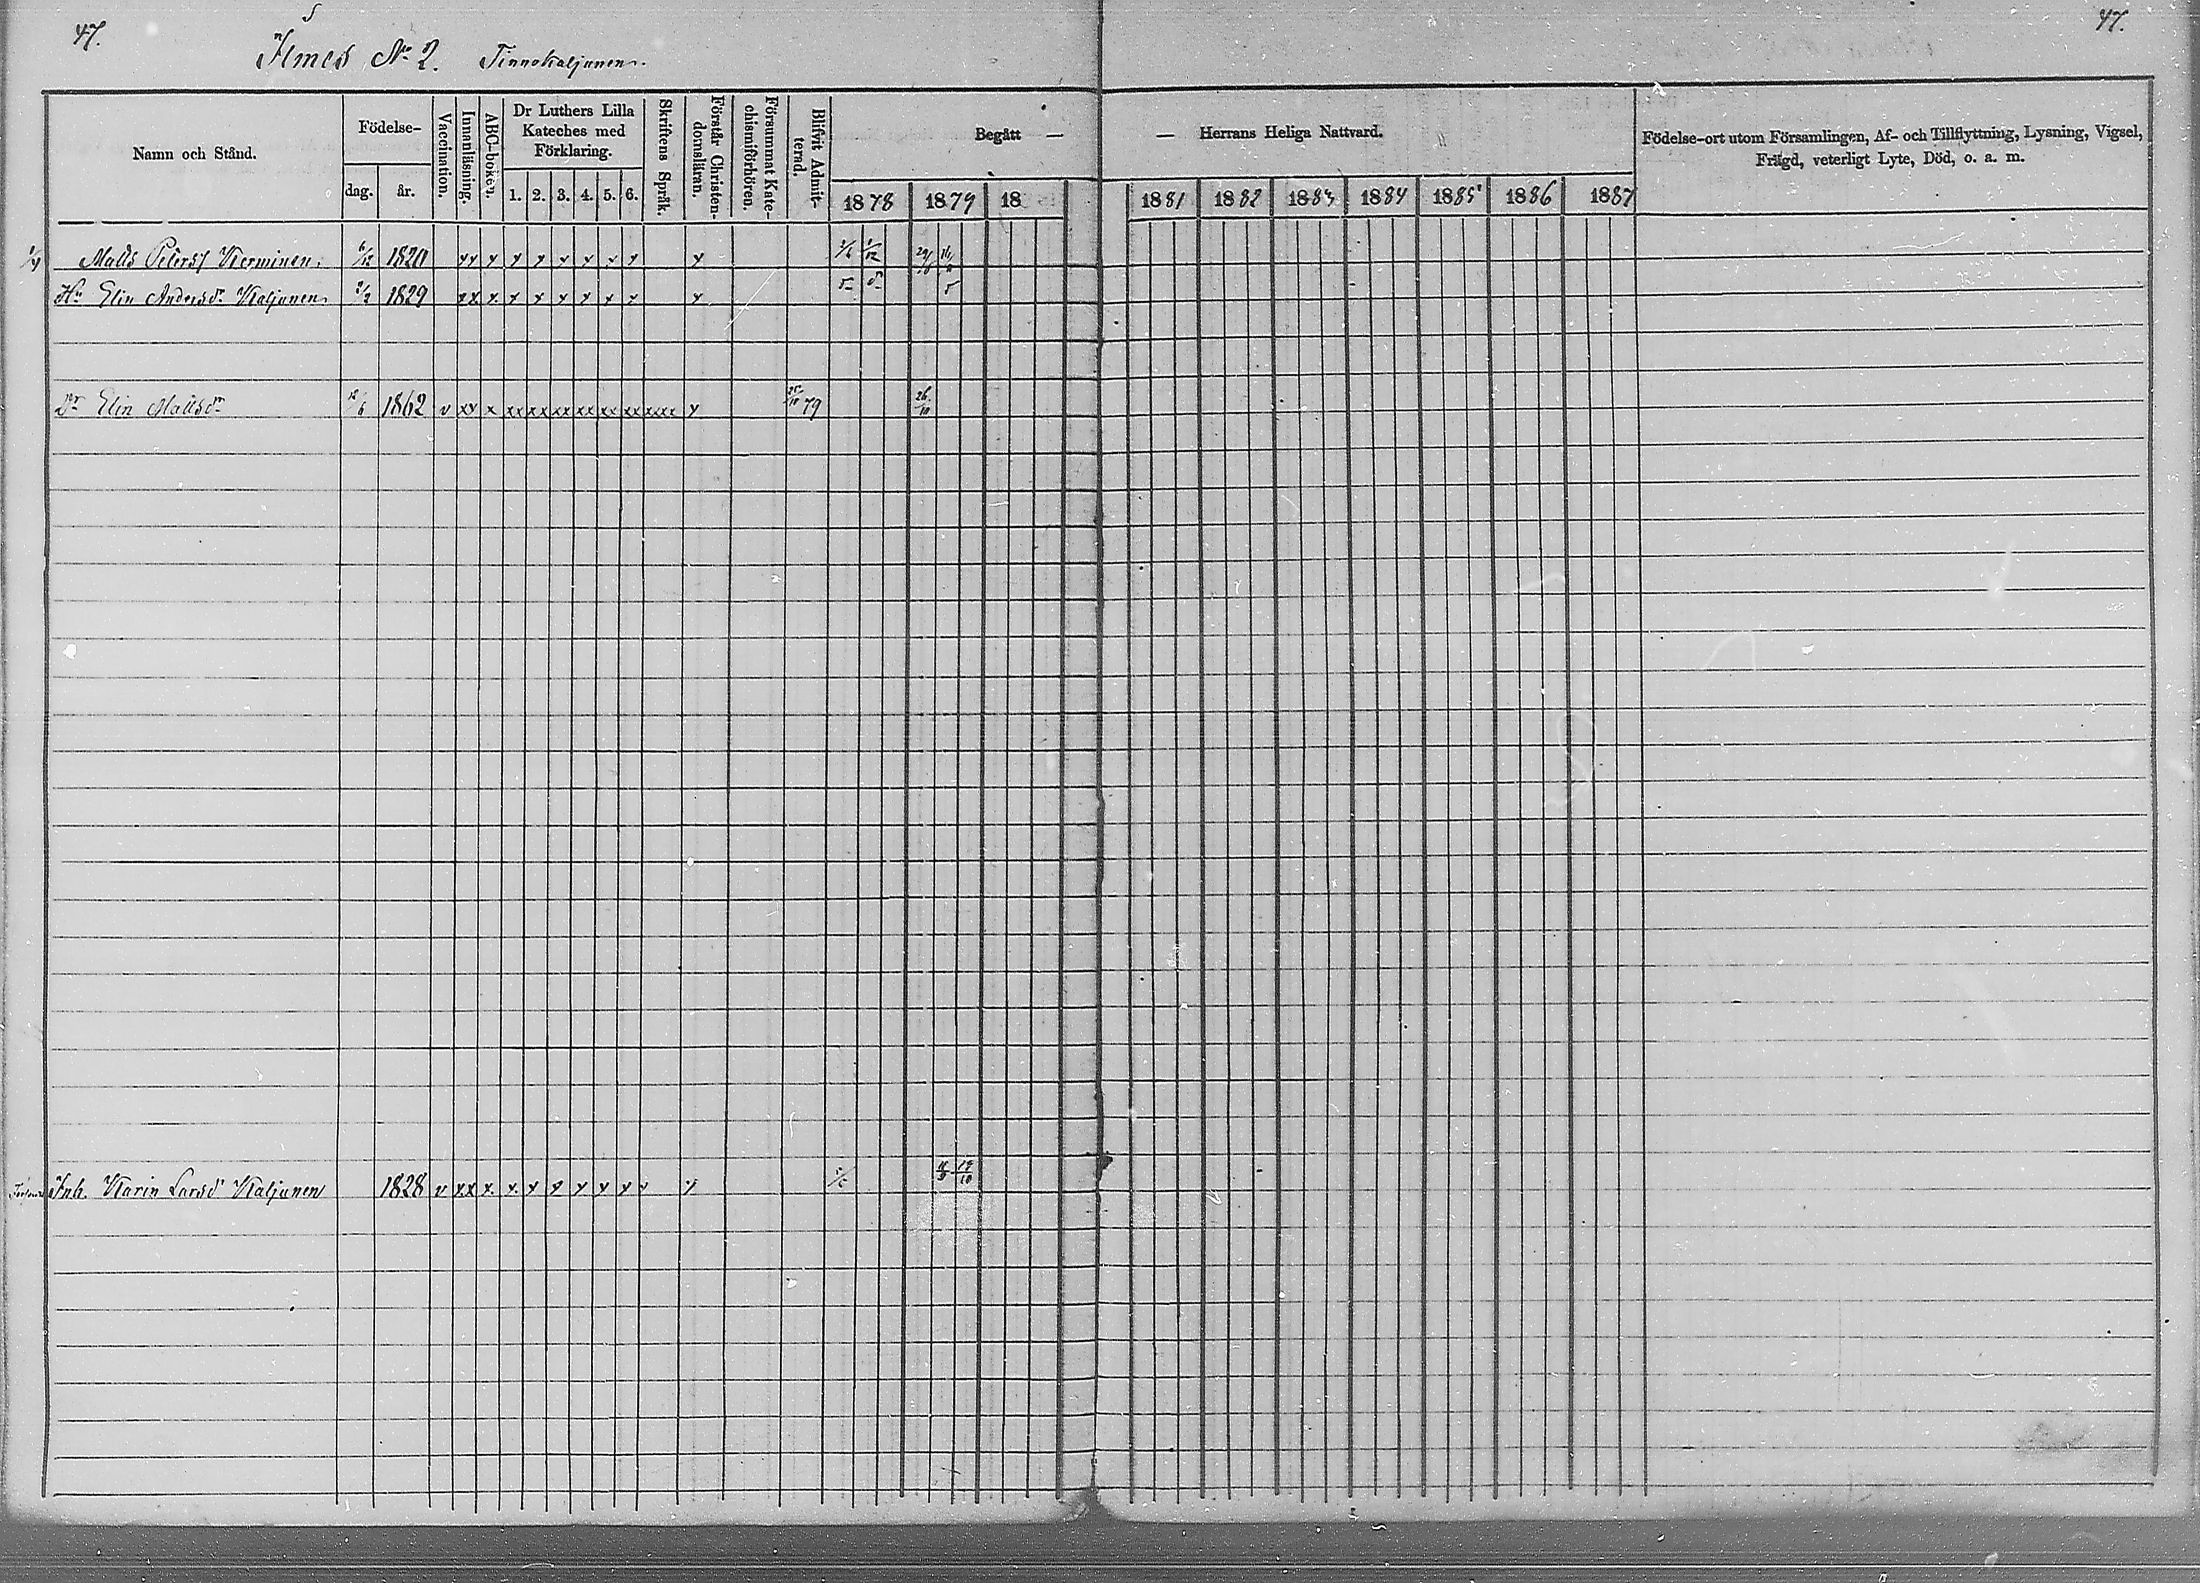 47.
47.
Ilmes No 2. Tinnokaljunen.
Namn och Stånd.
Födelse-
dag.
år.
Vaccination.
Innanläsning.
ABC-boken.
Dr Luthers Lilla
Kateches med
Förklaring.
1. 2. 3. 4. 5. 6.
Skriftens Språk.
Förstår Christen-
domsläran.
Försummat Kate-
chismiförhören.
Blifvit Admit-
terad.
Begått —
— Herrans Heliga Nattvard.
1878 1879 18 1881 1882 1883 1884 1885 1886 1887
Födelse-ort utom Församlingen, Af- och Tillflyttning, Lysning, Vigsel,
Frägd, veterligt Lyte, Död, o. a. m.
Matts Petersf Kierminen. 1820 xx x x x x x x x x
Hu Elin Andersdr Kaljunen 1829 xx x x x x x x x x
Dr Elin Mattsdr 1862 v xx x xx xx xx xx xx xx xxx x 25/10 79 26/10
Inh. Karin Larsdr Kaljunen 1828 v xx x x x x x x x x